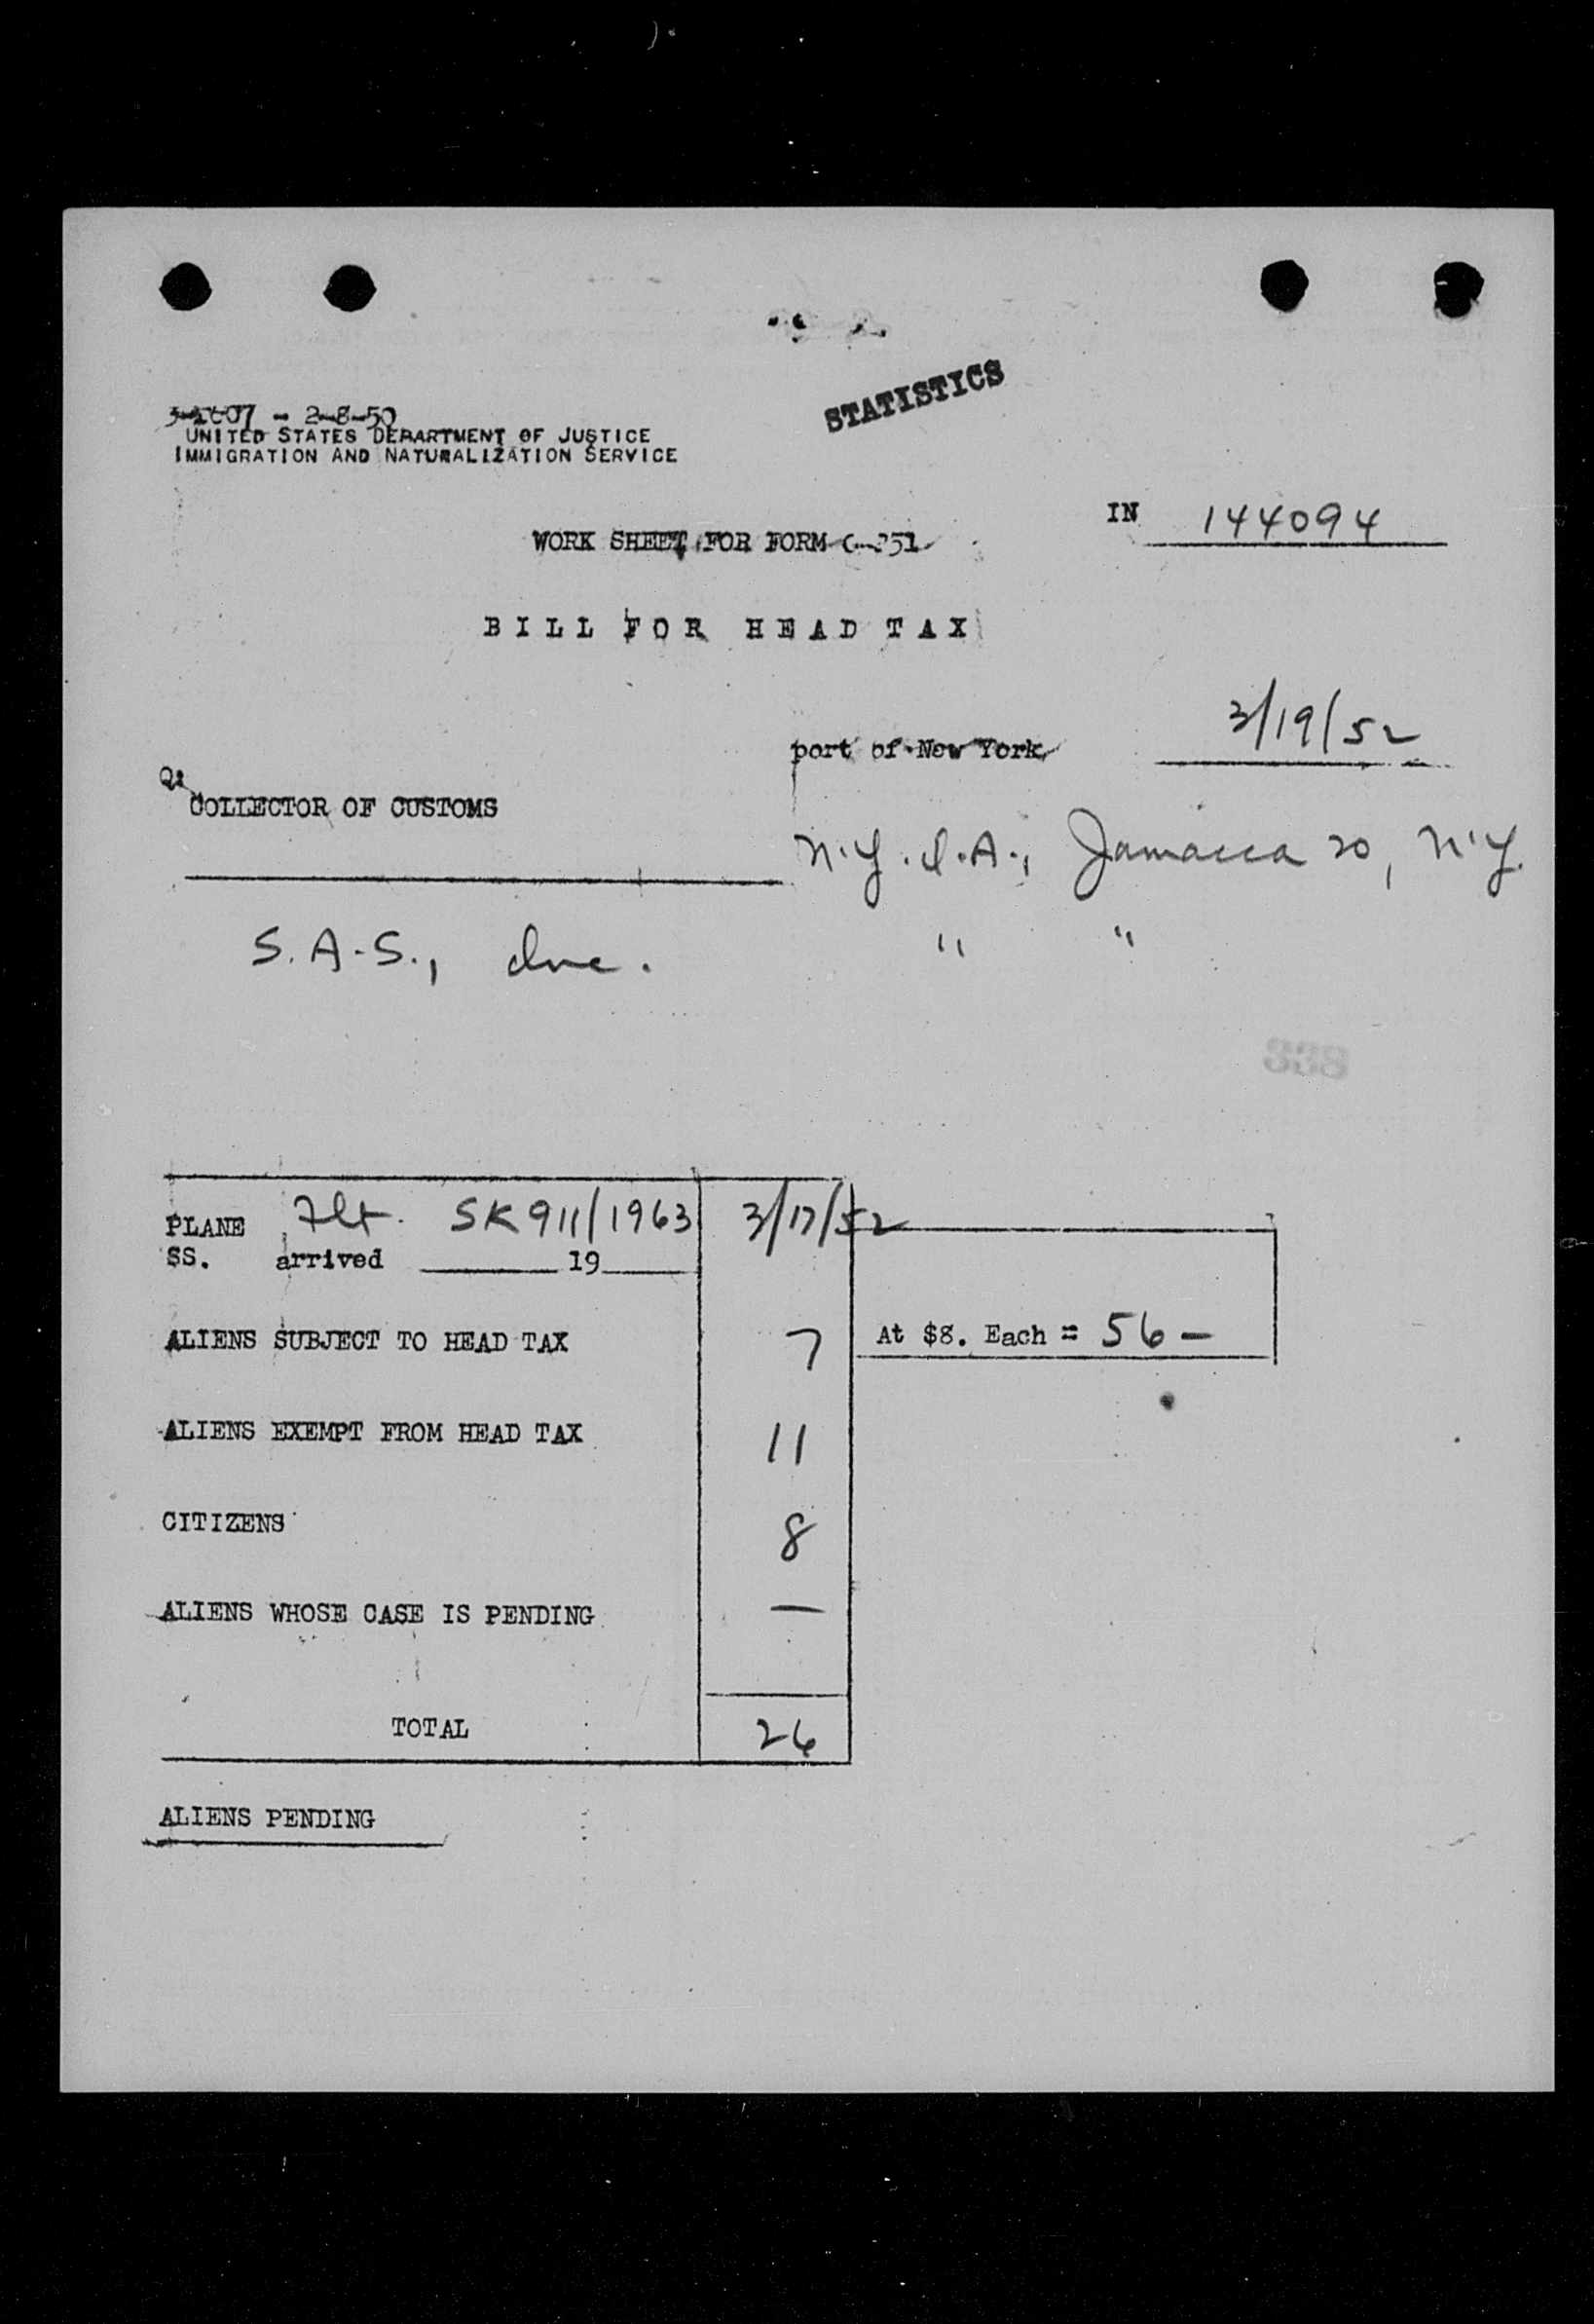 STATISTICS
- 2-8-50
UNITED STATES DEPARTMENT OF JUSTICE
IMMIGRATION AND NATURALIZATION SERVICE
IN 144094
WORK SHEET FOR FORM
BILL FOR HEAD TAX
3/19/52
port of New York
COLLECTOR OF CUSTOMS
N.Y.I.A., Jamaica 20, N.Y.
S.A.S., Inc. " "
338
PLANE Flt. SK911/1963 3/17/52
SS. arrived 19
ALIENS SUBJECT TO HEAD TAX 7 At $8. Each = 56 —
ALIENS EXEMPT FROM HEAD TAX 11
CITIZENS 8
ALIENS WHOSE CASE IS PENDING —
TOTAL 26
ALIENS PENDING